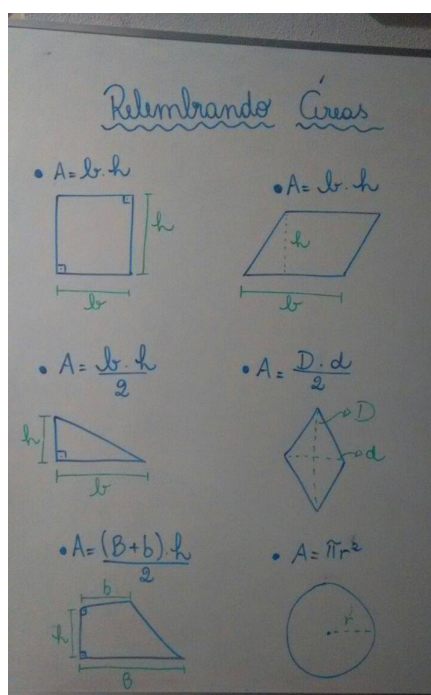 Relembrando Áreas
• A= b.h
h
b
• A= b.h
h
b
• A= b.h
2
h
b
• A= D.d
2
D
d
• A= (B+b).h
2
b
h
B
• A= πr²
r